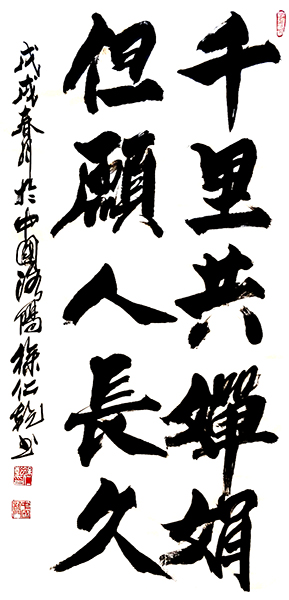 千里共嬋娟
但願人長久
戊戌春月於中國陽徐仁乾书